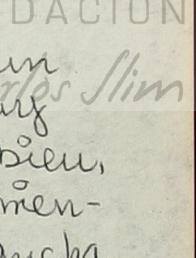 DACIÓN
un
Carlos Slim
muy
bien,
men-
mucha